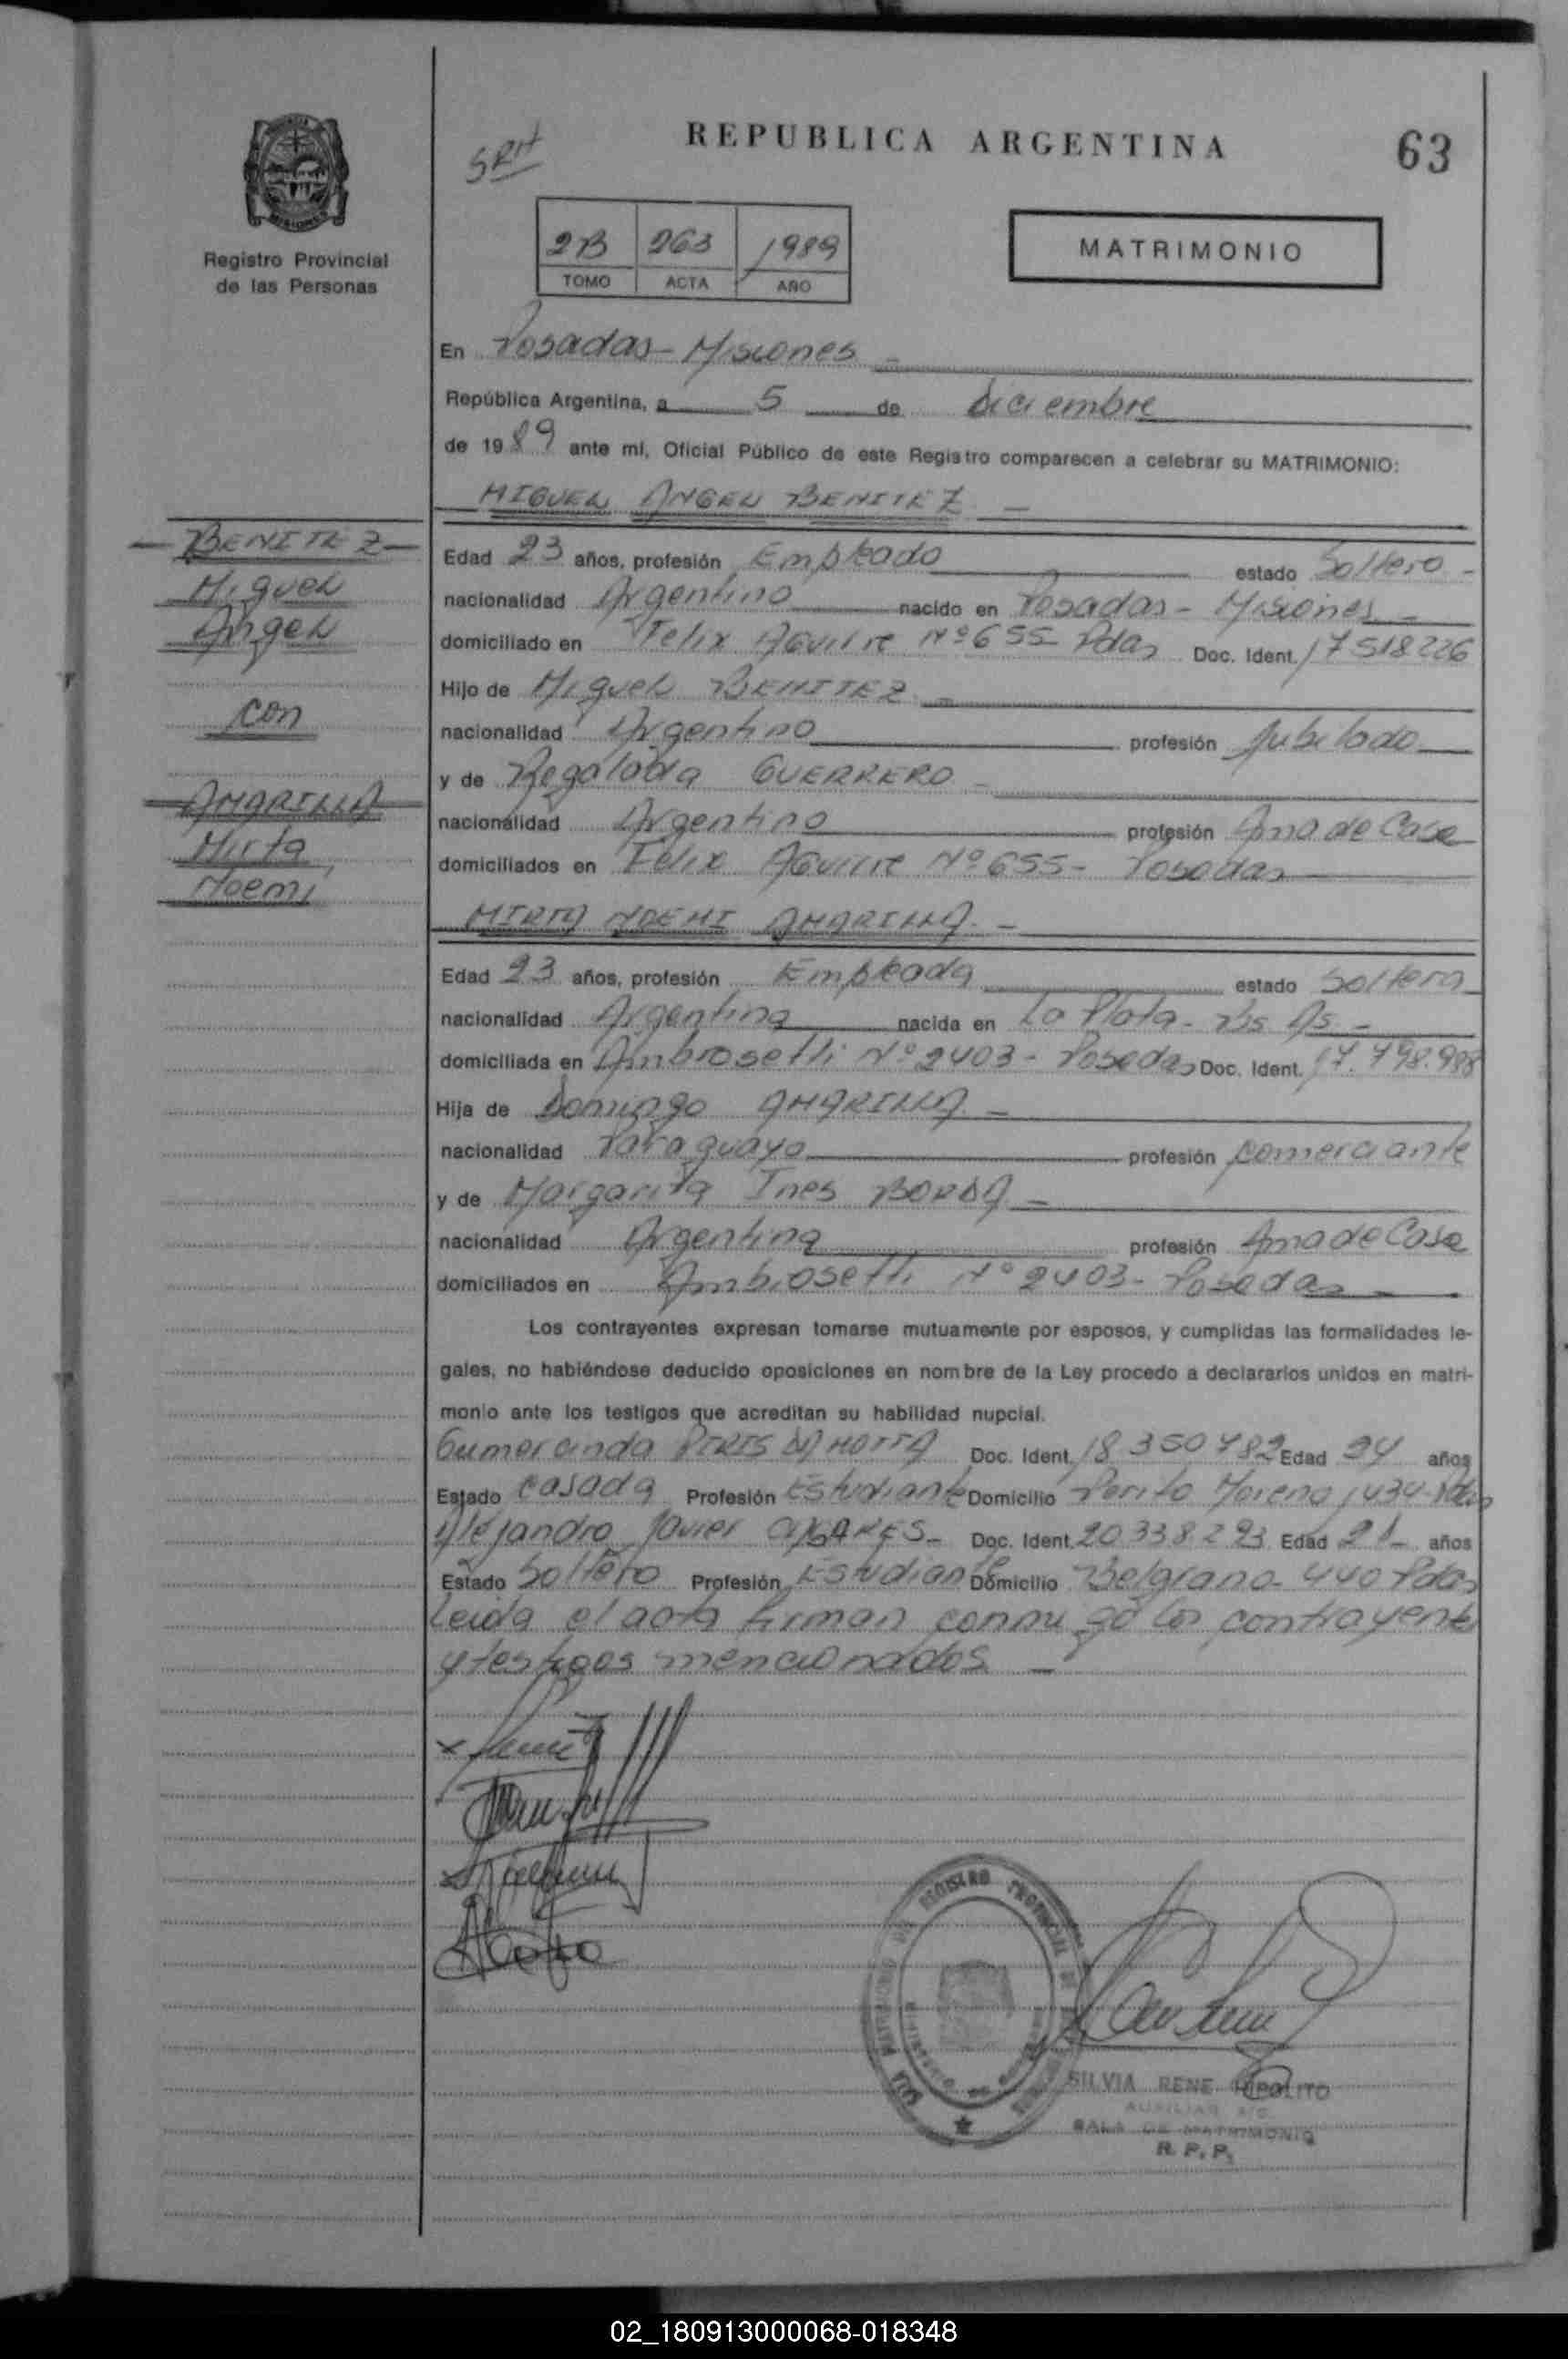 REPUBLICA ARGENTINA
63
SRH
MISIONES
Registro Provincial
de las Personas
2B 263 1989
TOMO ACTA AÑO
MATRIMONIO
En Posadas - Misiones -
República Argentina, a 5 de diciembre
de 1989 ante mi, Oficial Público de este Registro comparecen a celebrar su MATRIMONIO:
MIGUEL ANGEL BENITEZ -
- BENITEZ -
Miguel
Angel
con
AMARILLA
Mirta
Noemi
Edad 23 años, profesión Empleado estado Soltero -
nacionalidad Argentino nacido en Posadas - Misiones -
domiciliado en Felix Aguirre Nº 655 Pdas Doc. Ident. 17518226
Hijo de Miguel BENITEZ -
nacionalidad Argentino profesión Jubilado
y de Regalada GUERRERO -
nacionalidad Argentino profesión Ama de Casa
domiciliados en Felix Aguirre Nº 655 - Posadas
MIRTA NOEMI AMARILLA -
Edad 23 años, profesión Empleada estado Soltera
nacionalidad Argentina nacida en La Plata - Bs As -
domiciliada en Ambrosetti Nº 2403 - Posadas Doc. Ident. 17.798.998
Hija de Domingo AMARILLA -
nacionalidad Paraguayo profesión comerciante
y de Margarita Ines BORDA -
nacionalidad Argentina profesión Ama de Casa
domiciliados en Ambrosetti Nº 2403 - Posadas -
Los contrayentes expresan tomarse mutuamente por esposos, y cumplidas las formalidades le-
gales, no habiéndose deducido oposiciones en nombre de la Ley procedo a declararlos unidos en matri-
monio ante los testigos que acreditan su habilidad nupcial.
Gumercinda PIRIS DA MOTTA Doc. Ident. 18.350782 Edad 24 años
Estado casada Profesión Estudiante Domicilio Perito Moreno 1434 Pdas
Alejandro Javier Doc. Ident. 20338293 Edad 21 años
Estado Soltero Profesión Estudiante Domicilio Belgrano 440 Pdas
Leida el acta firman conmigo los contrayente
y testigos mencionados -
SILVIA RENE HIPOLITO
AUXILIAR A/C
SALA DE MATRIMONIO
R. P. P.
02_180913000068-018348